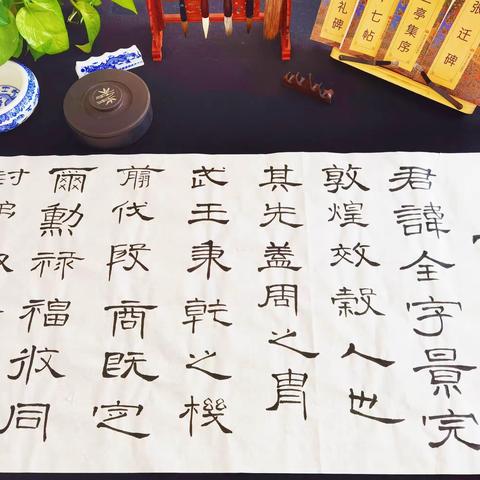 张迁碑
亭集序
七帖
礼碑
君諱全字景完
敦煌效穀人也
其先蓋周之胄
武王秉乾之機
翦伐殷商既定
爾勳祿福攸同